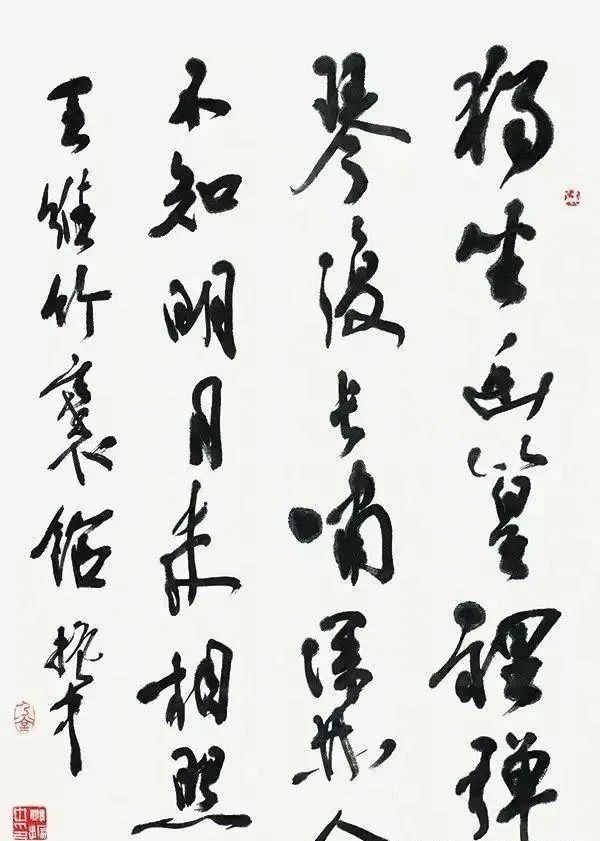 獨坐幽篁裡彈
琴復長嘯深林人
不知明月来相照
王維竹裏館